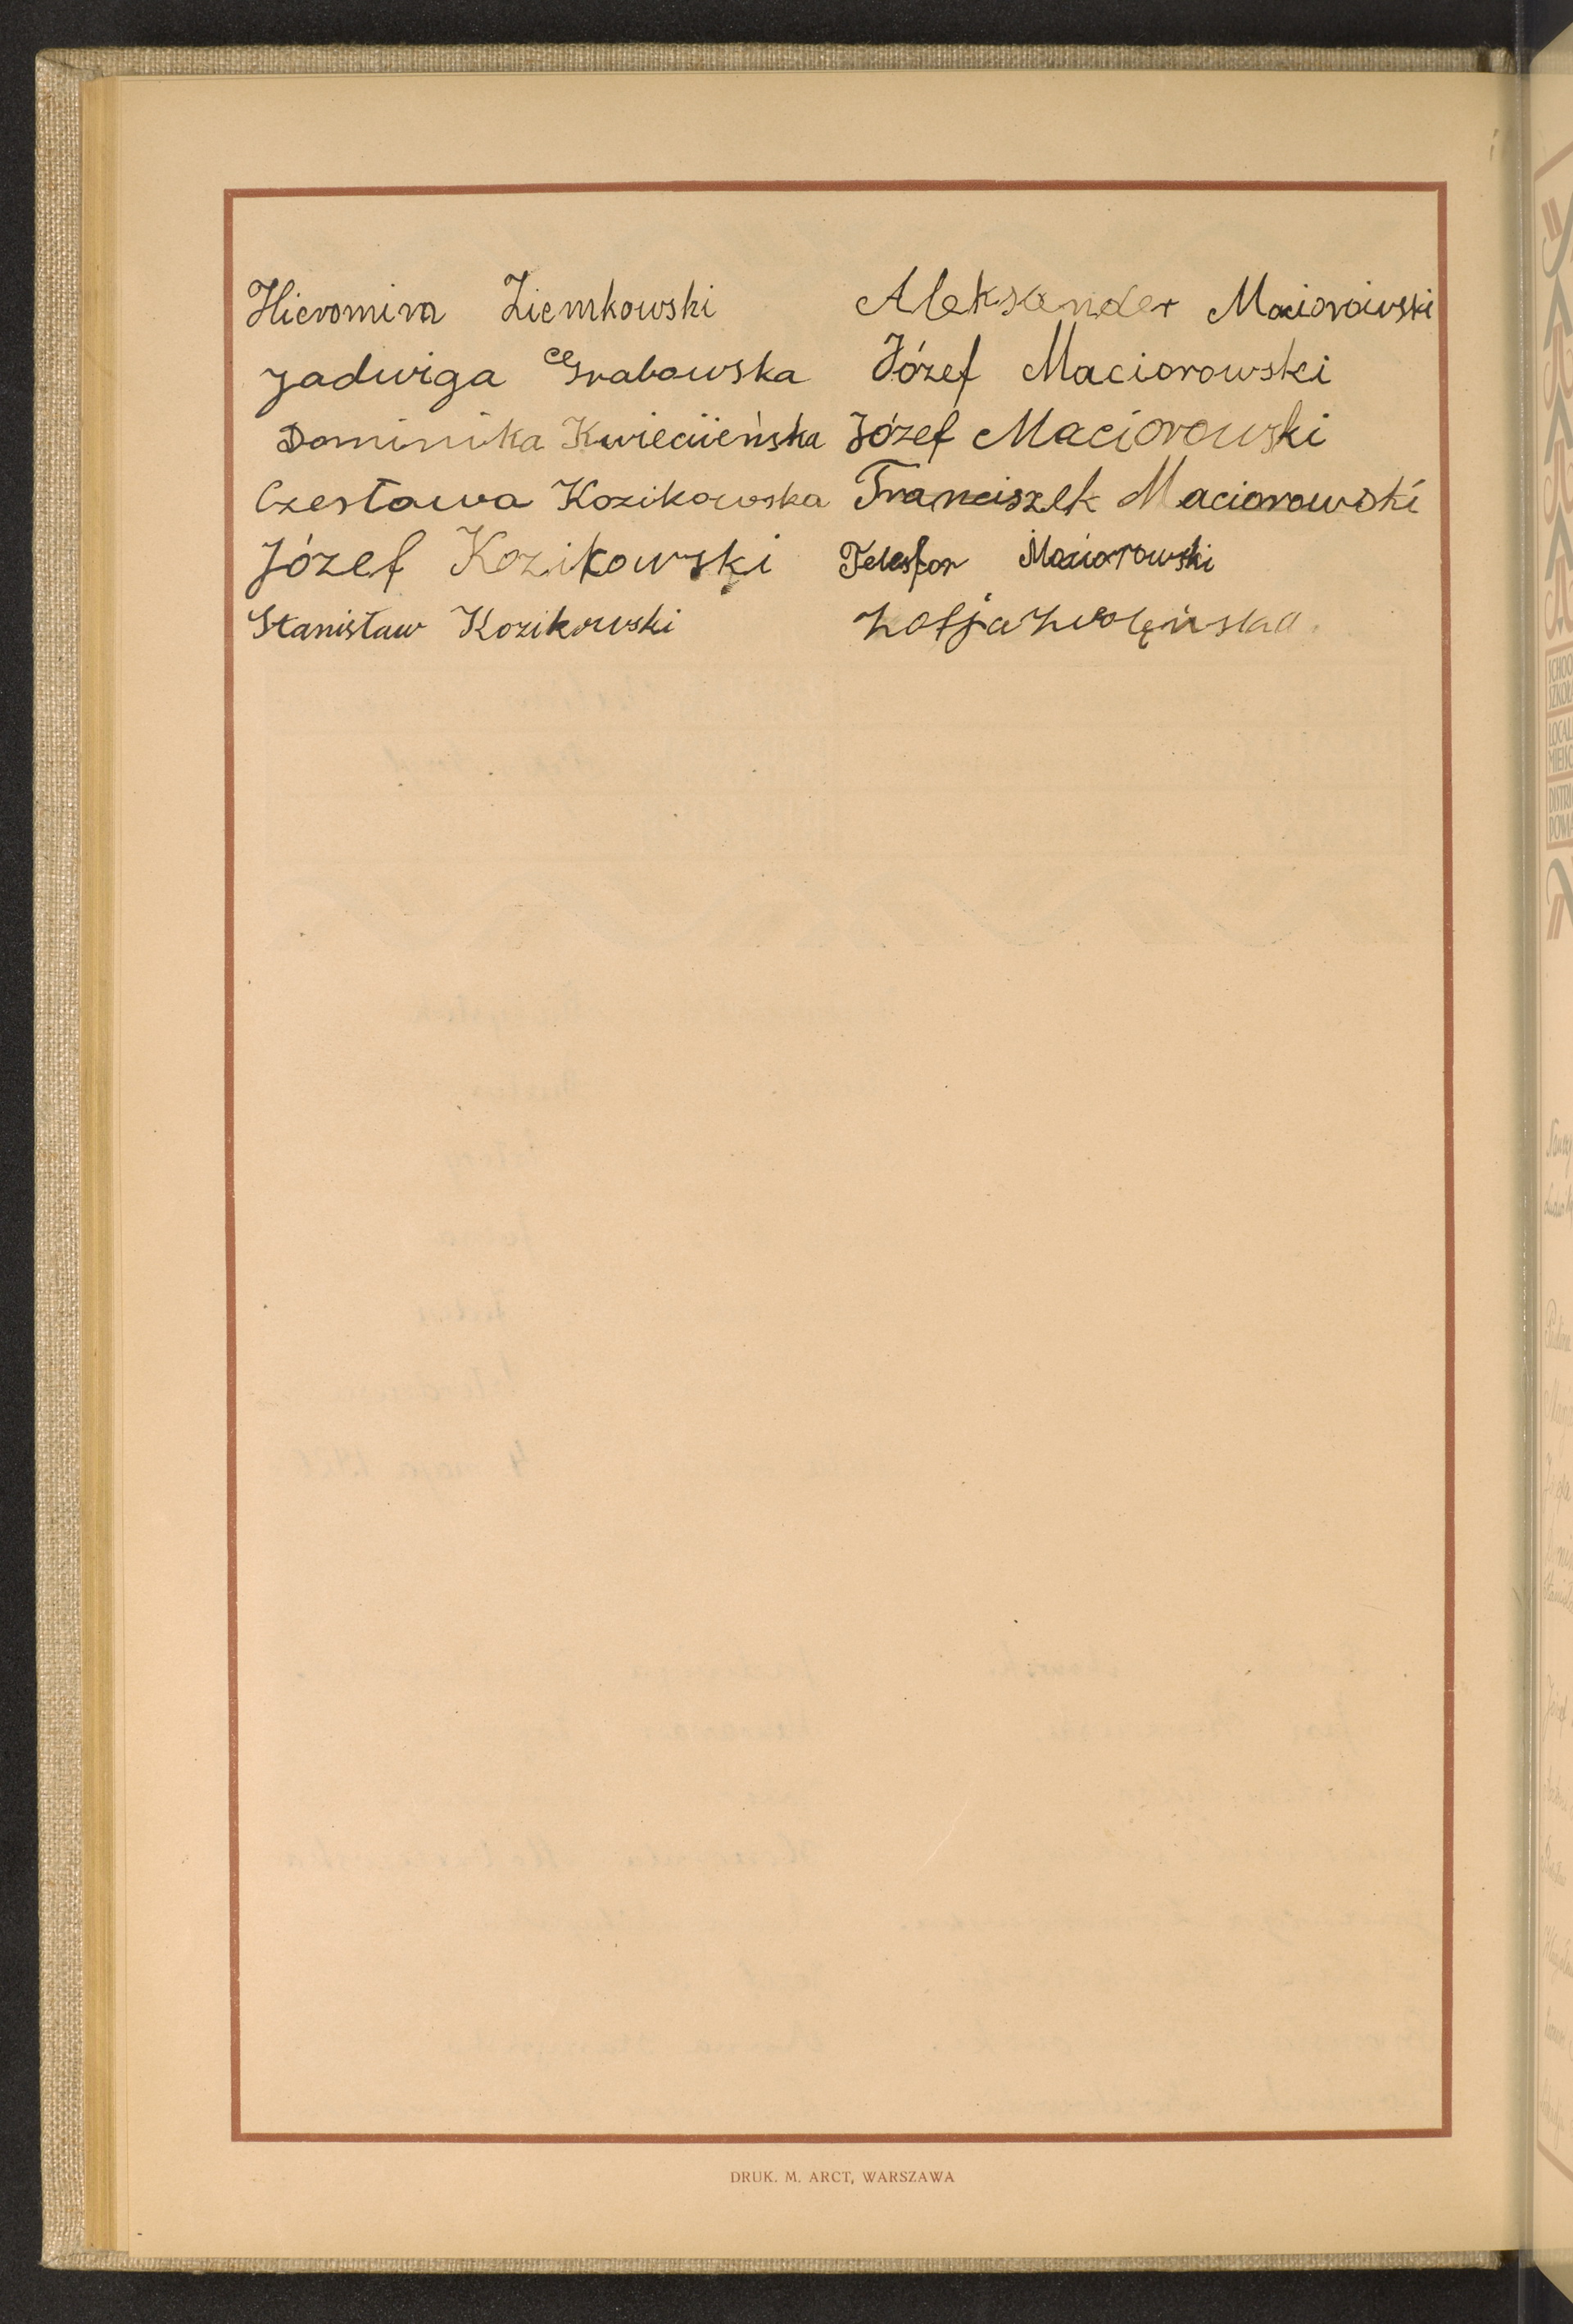 Hieronim Ziemkowski
Jadwiga Grabowska
Dominika Kwieciieńska
Czestawa Kozikowska
Józef Kozikowski
Stanisław Kozikowski
Aleksander Maciorowski
Józef Maciorowski
Józef Maciorowski
Franciszek Maciorowski
Telesfor Maciorowski
Zofja Zwolęńska.
DRUK. M. ARCT, WARSZAWA